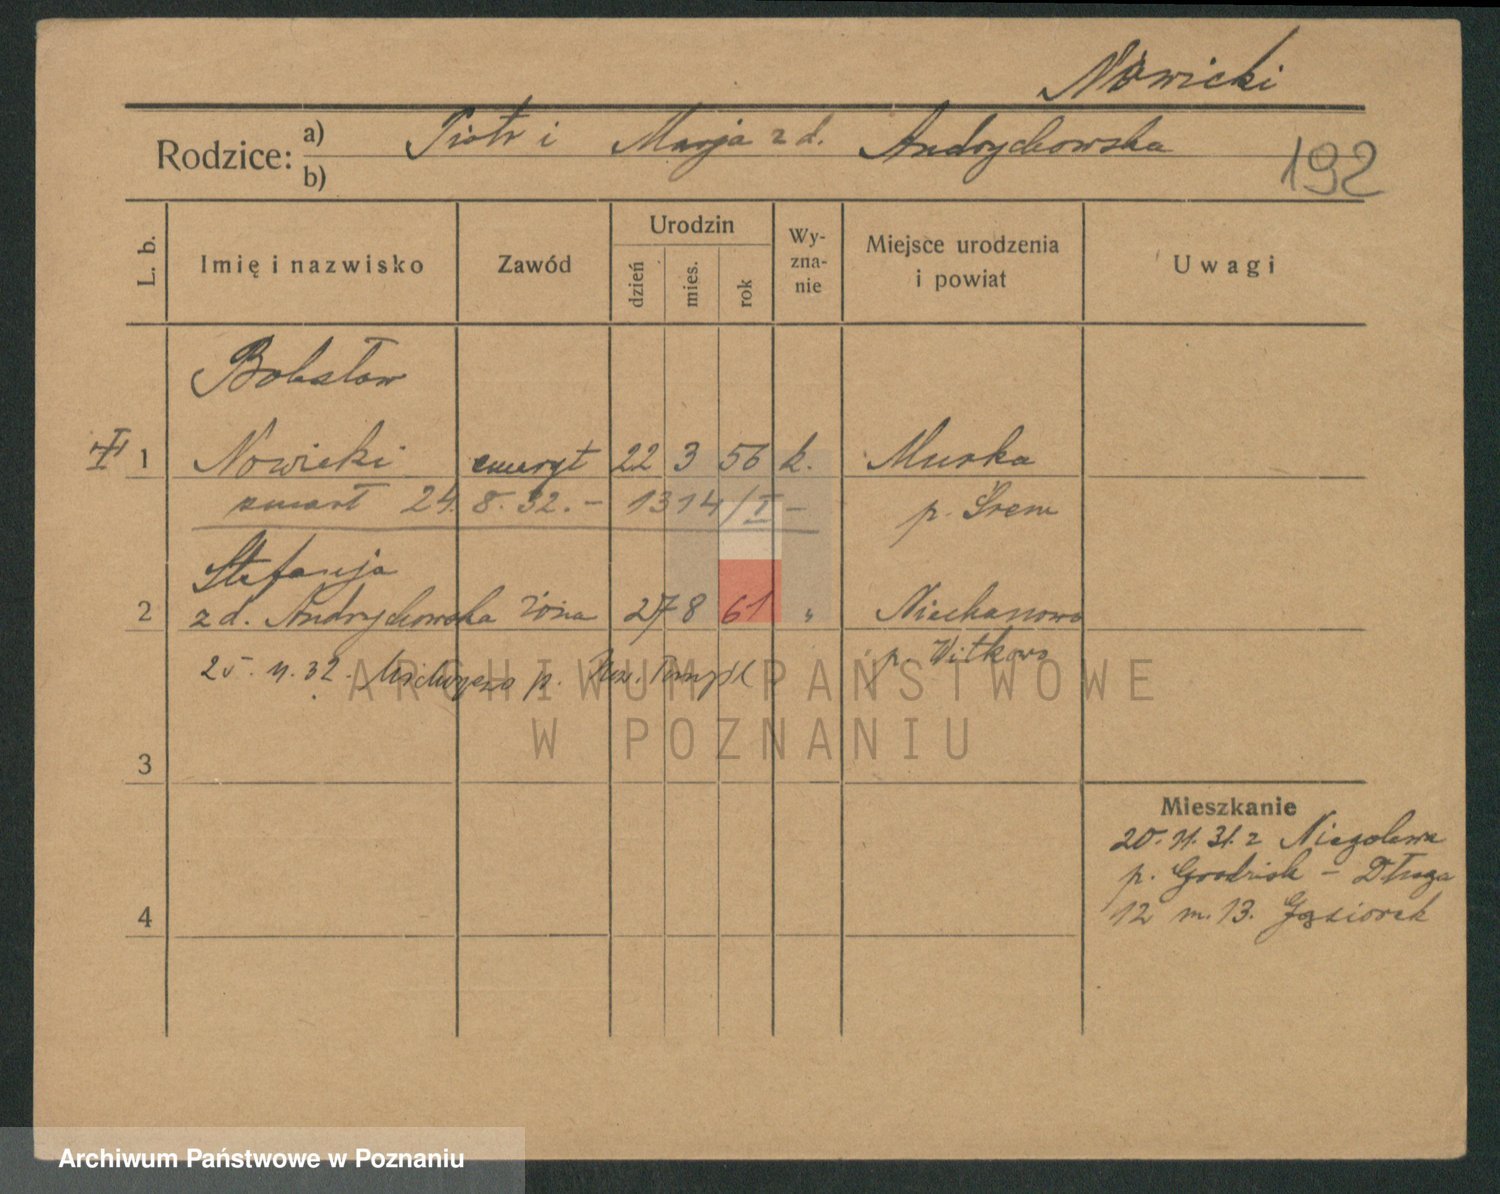 Nowicki
Rodzice: a) b) Piotr i Marja z d. Andrychowska
192
L. b.
Imię i nazwisko
Zawód
Urodzin
dzień
mies.
rok
Wy-
zna-
nie
Miejsce urodzenia
i powiat
Uwagi
Bolesław
1 Nowicki emeryt 22 3 56 k. Murka
zmarł 24. 8. 32. – 1314/I – p. Śrem
Stefanja
2 z d. Andrychowska żona 27 8 61 " Niechanowo
p. Witkowo
25. 11. 32. p. Now. Tomyśl
ARCHIWUM PAŃSTWOWE
W POZNANIU
3
Mieszkanie
20. 11. 31. z Niegolewa
p. Grodzisk – Długa
12 m. 13. Gąsiorek
4
Archiwum Państwowe w Poznaniu